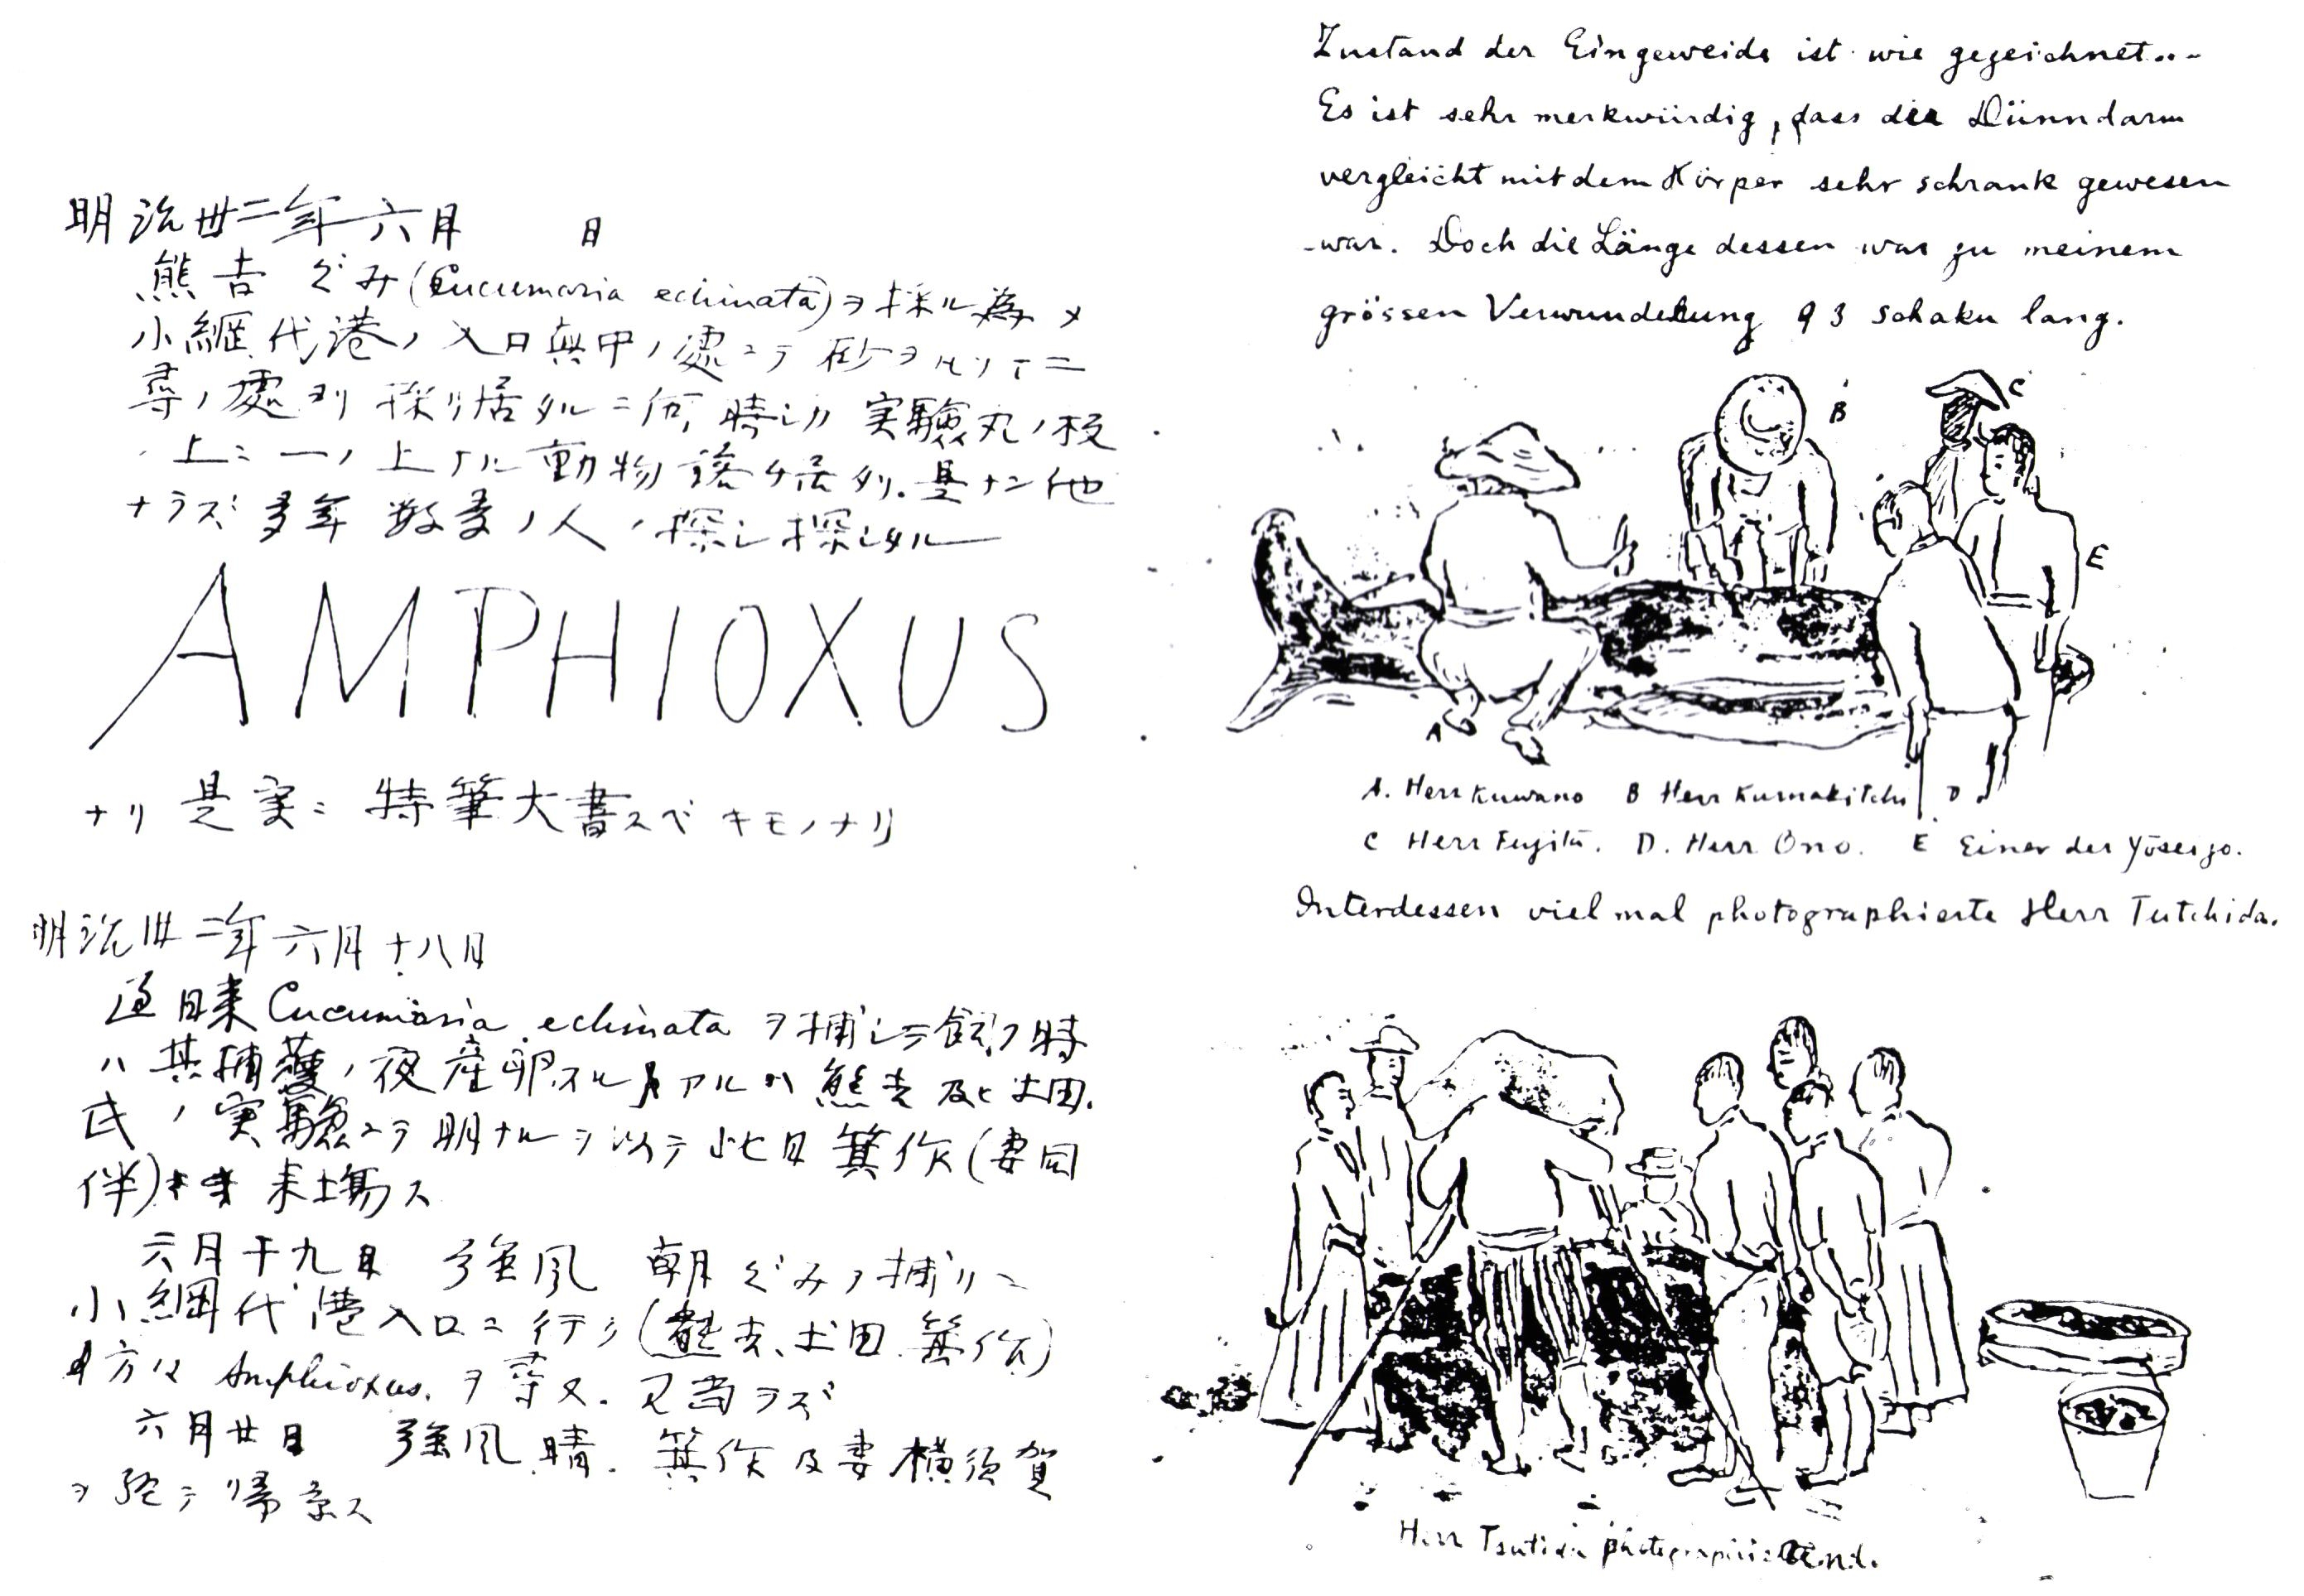 明治卅二年六月 日
熊吉 ぐみ(Cucumaria echinata)ヲ採ル為メ
小網代港ノ入口真中ノ処ニテ砂ヲ
尋ノ処ヨリ採リ居タルニ何時シカ実験丸ノ板
上ニ一ノ上ナル動物落チ居タリ.是ナン他
ナラズ多年数多ノ人ノ探シ探シタル
AMPHIOXUS
ナリ 是実ニ特筆大書スベキモノナリ
明治卅二年六月十八日
過日来 Cucumaria echinata ヲ捕ヘテ飼フ時
ハ其捕獲ノ夜産卵スル アルハ熊吉及ヒ土田
氏ノ実験ニテ明ナルヲ以テ此日箕作(妻同
伴) 来場ス
六月十九日 強風 朝ぐみノ捕リニ
小網代港入口ニ行ク(熊吉、土田、箕作)
方々 Amphioxus. ヲ尋ヌ. 見当ラズ
六月廿日 強風 晴. 箕作及妻横須賀
ヲ経テ帰京ス
Zustand der Eingeweide ist wie gezeichnet..-
Es ist sehr merkwürdig, dass der Dünndarm
vergleicht mit dem Körper sehr schrank gewesen
war. Doch die Länge dessen war zu meinem
grössen Verwunderung 93 schaku lang.
C
B
E
A
A. Herr Kuwano B Herr Kumakitchi D
C Herr Fujita. D. Herr Ono. E Einer der Yōseijo.
Interdessen viel mal photographierte Herr Tutchida.
Herr Tsutida photographierend.